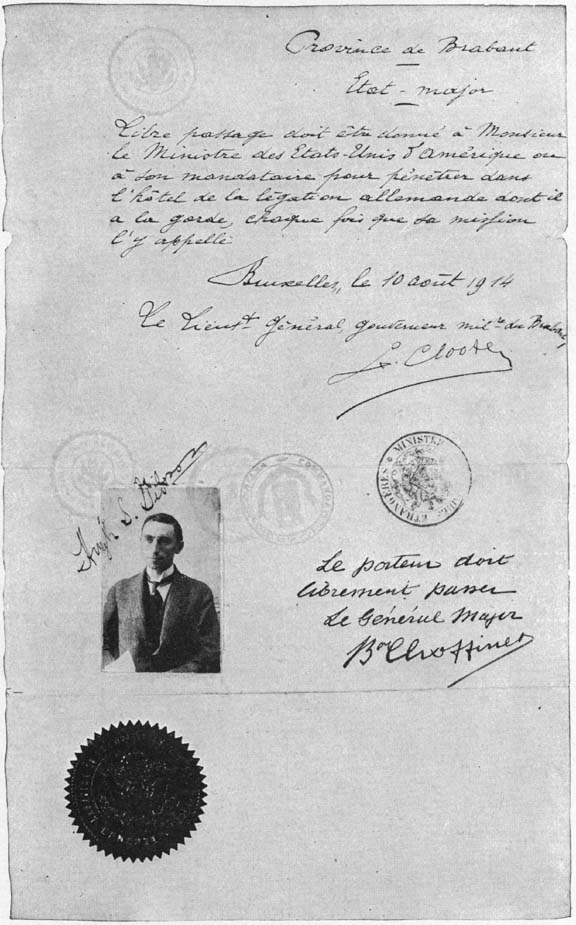 Province de Brabant
Etat-major
Libre passage doit être donné à Monsieur
le Ministre des Etats-Unis d'Amérique ou
à son mandataire pour pénétrer dans
l'hôtel de la légation allemande dont il
a la garde, chaque fois que sa mission
l'y appelle
Bruxelles, le 10 août 1914
Le Lieut. Général, gouverneur milre du Brabant,
Hugh S. Gibson
MINISTRE
ETRANGÈRES
Le porteur doit
librement passer
Le Général Major